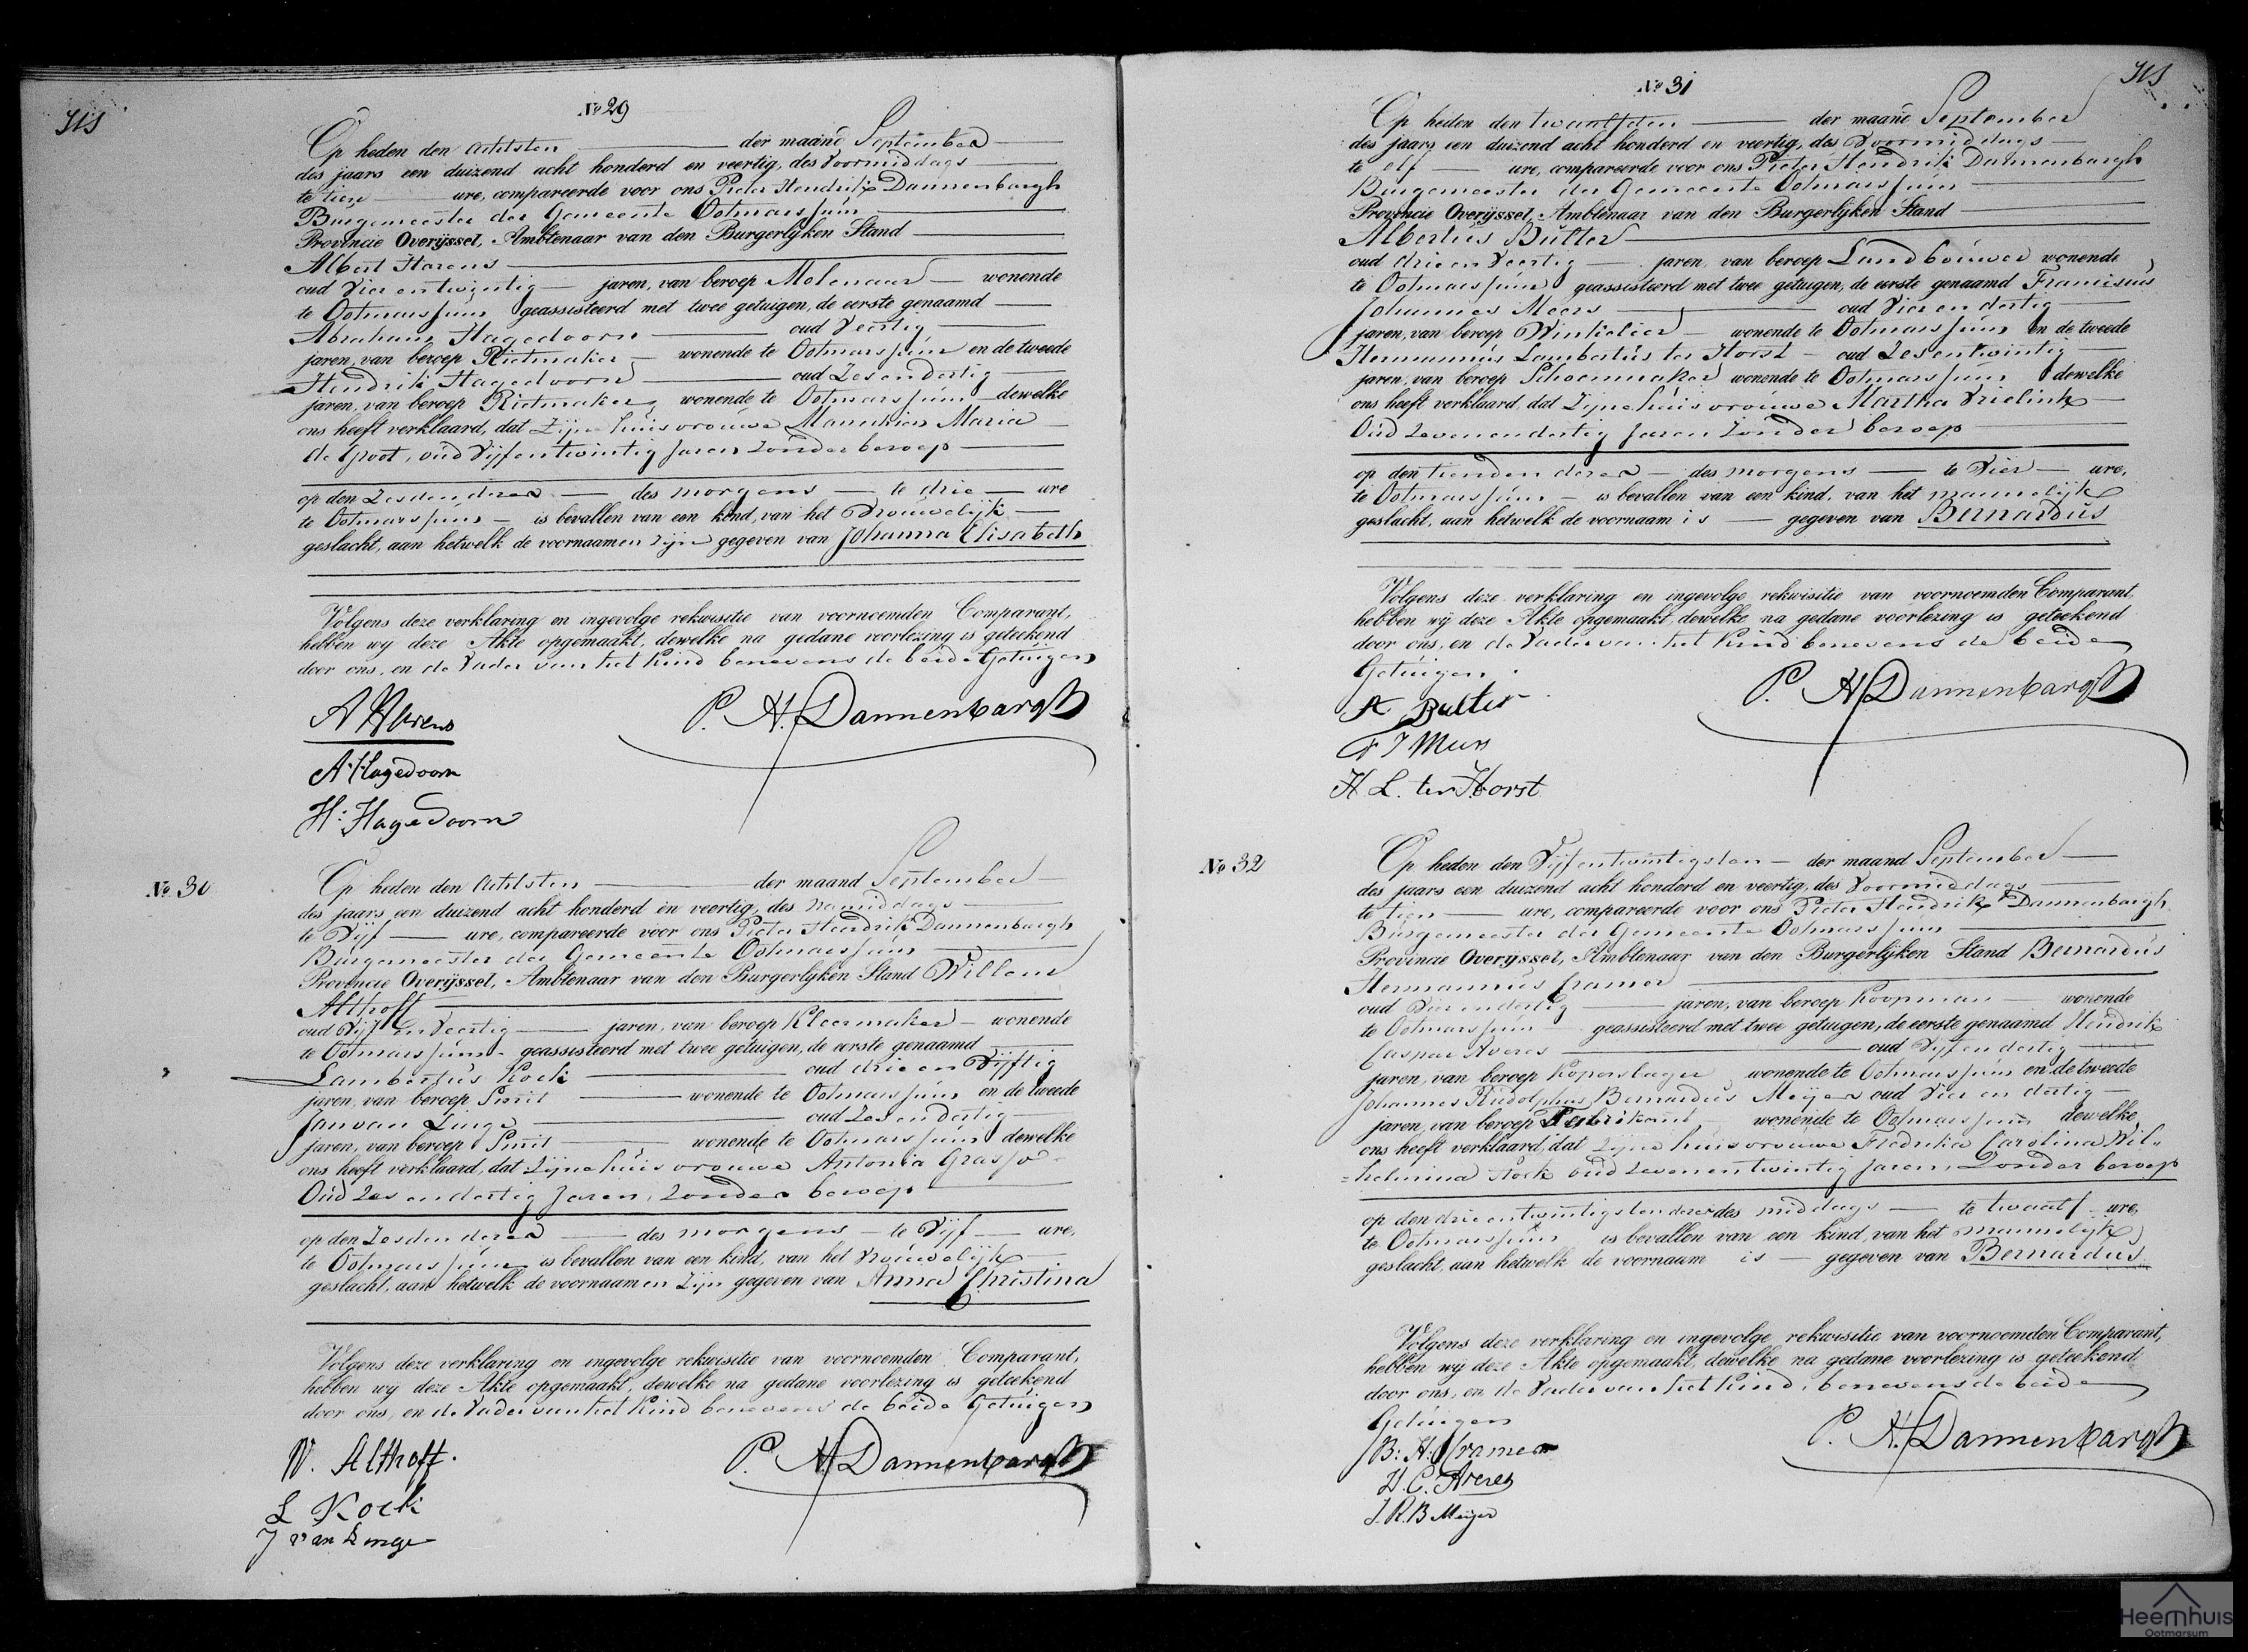 No 29
Op heden den achtsten der maand September
des jaars een duizend acht honderd en veertig, des Voormiddags
te tien ure, compareerde voor ons Pieter Hendrik Dannenbargh
Burgemeester der Gemeente Ootmarssum
Provincie Overijssel, Ambtenaar van den Burgerlijken Stand
Albert Harens
oud Vier en twintig jaren, van beroep Molenaar wonende
te Ootmarssum geassisteerd met twee getuigen, de eerste genaamd
Abraham Hagedoorn oud Veertig
jaren, van beroep Rietmaker wonende te Ootmarssum en de tweede
Hendrik Hagedoorn oud Zes en dertig
jaren, van beroep Rietmaker wonende te Ootmarssum dewelke
ons heeft verklaard, dat Zijne huisvrouwe Maria
de Groot, oud Vijf en twintig Jaren Zonder beroep
op den Zesden dezer des morgens te drie ure
te Ootmarssum is bevallen van een kind, van het Vrouwelijk
geslacht, aan hetwelk de voornaamen zijn gegeven van Johanna Elisabeth
Volgens deze verklaring en ingevolge rekwisitie van voornoemden Comparant,
hebben wij deze Akte opgemaakt, dewelke na gedane voorlezing is geteekend
door ons, en de Vader van het Kind benevens de beide Getuigen
A Harens
P. H. Dannenbargh
A. Hagedoorn
H. Hagedoorn
No 30
Op heden den achtsten der maand September
des jaars een duizend acht honderd en veertig, des namiddags
te Vijf ure, compareerde voor ons Pieter Hendrik Dannenbargh
Burgemeester der Gemeente Ootmarssum
Provincie Overijssel, Ambtenaar van den Burgerlijken Stand Willem
Althoff
oud Vijf en Veertig jaren, van beroep Kleermaker wonende
te Ootmarssum geassisteerd met twee getuigen, de eerste genaamd
Lambertus Kock oud drie en Vijftig
jaren, van beroep Smit wonende te Ootmarssum en de tweede
Jan van Linge oud Zes en dertig
jaren, van beroep Smit wonende te Ootmarssum dewelke
ons heeft verklaard, dat Zijne huisvrouwe Antonia
Oud Zes en dertig Jaren, Zonder beroep
op den Zesden dezer des morgens te Vijf ure,
te Ootmarssum is bevallen van een kind, van het Vrouwelijk
geslacht, aan hetwelk de voornaamen Zijn gegeven van Anna Christina
Volgens deze verklaring en ingevolge rekwisitie van voornoemden Comparant,
hebben wij deze Akte opgemaakt, dewelke na gedane voorlezing is geteekend
door ons, en de Vader van het Kind benevens de beide Getuigen
W. Althoff.
P. H. Dannenbargh
L Kock
J van Linge
No 31
Op heden den twaalfden der maand September
des jaars een duizend acht honderd en veertig, des Voormiddags
te elf ure, compareerde voor ons Pieter Hendrik Dannenbargh
Burgemeester der Gemeente Ootmarssum
Provincie Overijssel, Ambtenaar van den Burgerlijken Stand
Albertus Bulter
oud drie en Veertig jaren, van beroep Landbouwer wonende
te Ootmarssum geassisteerd met twee getuigen, de eerste genaamd Franciscus
Johannes Meers oud Vier en dertig
jaren, van beroep Winkelier wonende te Ootmarssum en de tweede
Hermannus Lambertus ter Horst oud Zes en twintig
jaren, van beroep Schoenmaker wonende te Ootmarssum dewelke
ons heeft verklaard, dat Zijne huisvrouwe Martha Vrielink
Oud Zeven en dertig Jaren Zonder beroep
op den tienden dezer des morgens te Vier ure,
te Ootmarssum is bevallen van een kind, van het mannelijk
geslacht, aan hetwelk de voornaam is gegeven van Bernardus
Volgens deze verklaring en ingevolge rekwisitie van voornoemden Comparant,
hebben wij deze Akte opgemaakt, dewelke na gedane voorlezing is geteekend
door ons, en de Vader van het Kind benevens de beide
Getuigen.
A Bulter
P. H. Dannenbargh
F J Meers
H. L. ter Horst
No 32
Op heden den Vijf en twintigsten der maand September
des jaars een duizend acht honderd en veertig, des Voormiddags
te tien ure, compareerde voor ons Pieter Hendrik Dannenbargh
Burgemeester der Gemeente Ootmarssum
Provincie Overijssel, Ambtenaar van den Burgerlijken Stand Bernardus
Hermannus Cramer
oud Vier en dertig jaren, van beroep Koopman wonende
te Ootmarssum geassisteerd met twee getuigen, de eerste genaamd Hendrik
Caspar Averes oud Vijf en dertig
jaren, van beroep Koperslager wonende te Ootmarssum en de tweede
Johannes Rudolphus Bernardus Meijer oud Vier en dertig
jaren, van beroep Fabrikant wonende te Ootmarssum dewelke
ons heeft verklaard, dat Zijne huisvrouwe Fredrika Carolina Wil-
helmina Stock oud Zeven en twintig Jaren, Zonder beroep
op den drie en twintigsten dezer des middags te twaalf ure,
te Ootmarssum is bevallen van een kind, van het mannelijk
geslacht, aan hetwelk de voornaam is gegeven van Bernardus
Volgens deze verklaring en ingevolge rekwisitie van voornoemden Comparant,
hebben wij deze Akte opgemaakt, dewelke na gedane voorlezing is geteekend
door ons, en de Vader van het Kind, benevens de beide
Getuigen
B: H: Cramer
P. H. Dannenbargh
H. C. Averes
J. R. B Meijer
Heemhuis
Ootmarsum